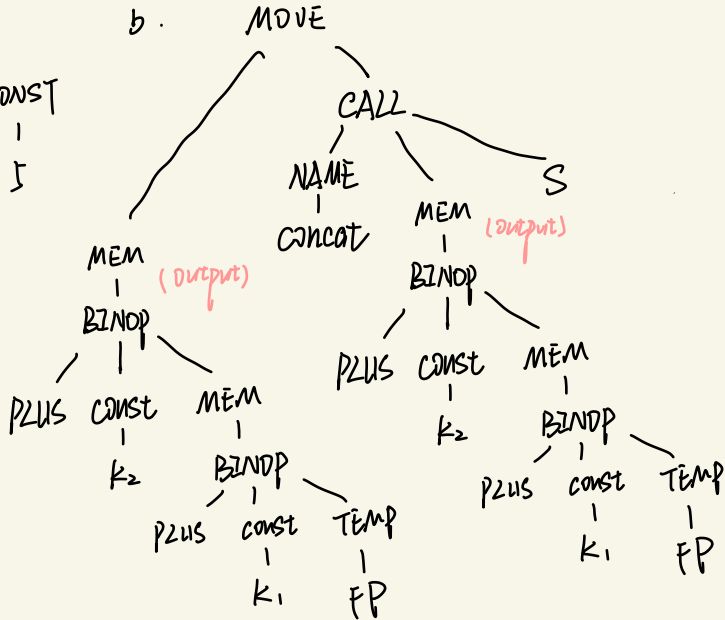 b. MOVE
ONST
CALL
5
NAME
S
MEM (output)
concat
MEM (output)
BINOP
BINOP
PLUS const MEM
PLUS const MEM
K2
K2 BINOP
BINOP
PLUS const TEMP
PLUS const TEMP
K1 FP
K1 FP